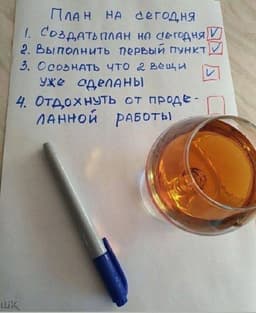 ПЛАН НА СЕГОДНЯ
1. СОЗДАТЬ ПЛАН НА СЕГОДНЯ
2. ВЫПОЛНИТЬ ПЕРВЫЙ ПУНКТ
3. ОСОЗНАТЬ ЧТО 2 ВЕЩИ
УЖЕ СДЕЛАНЫ
4. ОТДОХНУТЬ ОТ ПРОДЕ-
ЛАННОЙ РАБОТЫ